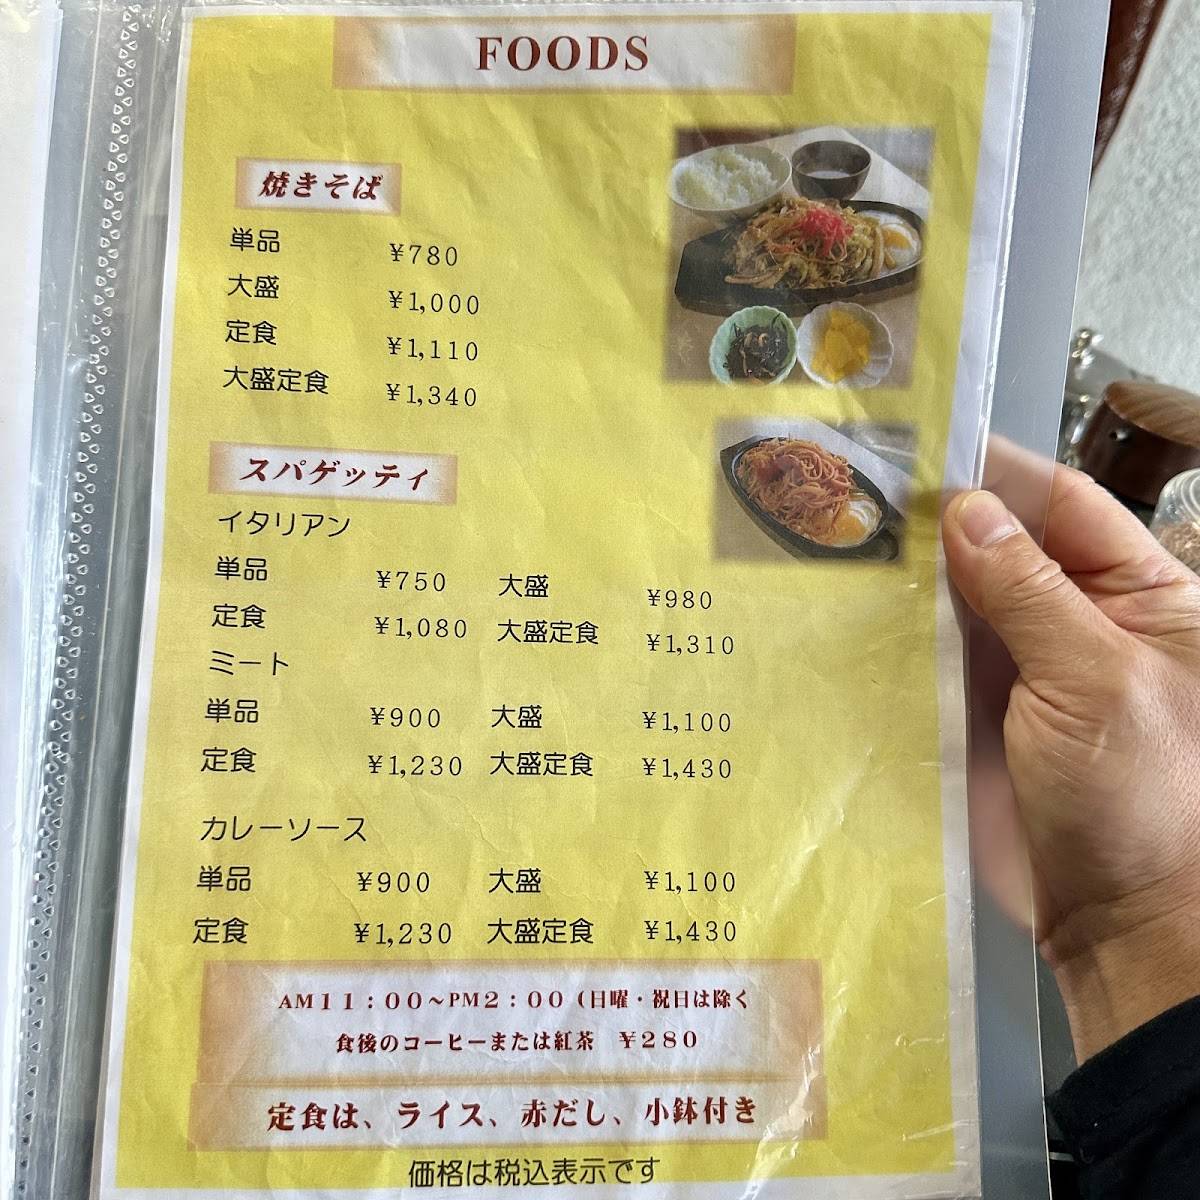 FOODS
焼きそば
単品 ¥780
大盛 ¥1,000
定食 ¥1,110
大盛定食 ¥1,340
スパゲッティ
イタリアン
単品 ¥750 大盛 ¥980
定食 ¥1,080 大盛定食 ¥1,310
ミート
単品 ¥900 大盛 ¥1,100
定食 ¥1,230 大盛定食 ¥1,430
カレーソース
単品 ¥900 大盛 ¥1,100
定食 ¥1,230 大盛定食 ¥1,430
AM11:00～PM2:00（日曜・祝日は除く
食後のコーヒーまたは紅茶 ¥280
定食は、ライス、赤だし、小鉢付き
価格は税込表示です